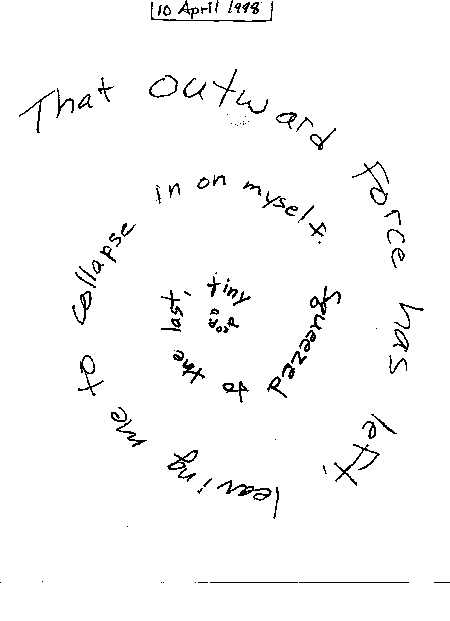 10 April 1998
That outward force has left, leaving me to collapse in on myself. Squeezed to the last, tiny